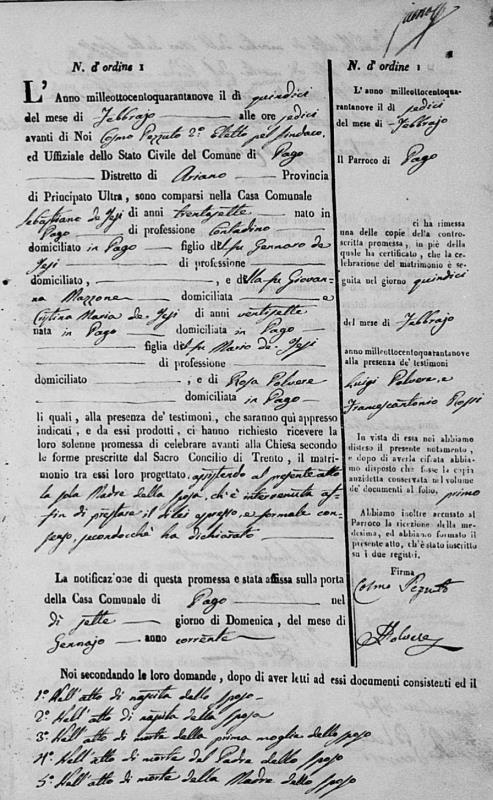 N. d'ordine 1
L'Anno milleottocentoquarantanove il dì quindici
del mese di Febbrajo alle ore sedici
avanti di Noi Cosmo Pezzuto 2° Eletto pel sindaco
ed Uffiziale dello Stato Civile del Comune di Pago
Distretto di Ariano Provincia
di Principato Ultra, sono comparsi nella Casa Comunale
Sebastiano de Jesi di anni trentasette nato in
Pago di professione Contadino
domiciliato in Pago figlio del fu Gennaro de
Jesi di professione
domiciliato, e della fu Giovan-
na Mazzone domiciliata e
Cristina Maria de Jesi di anni ventisette
nata in Pago domiciliata in Pago
figlia del fu Mario de Jesi
di professione
domiciliato, e di Rosa Polvere
domiciliata in Pago
li quali, alla presenza de' testimoni, che saranno quì appresso
indicati, e da essi prodotti, ci hanno richiesto ricevere la
loro solenne promessa di celebrare avanti alla Chiesa secondo
le forme prescritte dal Sacro Concilio di Trento, il matri-
monio tra essi loro progettato, assistendo al presente atto
la sola Madre della sposa, ch'è intervenuta af-
fin di prestare il di lei espresso, e formale con-
senso, secondocchè ha dichiarato
La notificazione di questa promessa è stata affissa sulla porta
della Casa Comunale di Pago nel
dì sette giorno di Domenica, del mese di
Gennajo anno corrente
Noi secondando le loro domande, dopo di aver letti ad essi documenti consistenti ed il
1° Dell'atto di nascita dello sposo
2° Dell'atto di nascita della sposa
3° Dell'atto di morte della prima moglie dello sposo
4° Dell'atto di morte del Padre dello sposo
5° Dell'atto di morte della Madre dello sposo
N. d'ordine 1
L'anno milleottocentoquara-
tanove il dì sedici
del mese di Febbrajo
Il Parroco di Pago
ci ha rimessa
una delle copie della contro-
scritta promessa, in piè della
quale ha certificato, che la ce-
lebrazione del matrimonio è se-
guita nel giorno quindici
del mese di Febbrajo
anno milleottocentoquarantanove
alla presenza de' testimoni
Luigi Polvere, e
Francescantonio Rossi
In vista di essa noi abbiamo
disteso il presente notamento,
e dopo di averla cifrata abbia-
mo disposto che fosse la copia
anzidetta conservata nel volume
de' documenti al foglio, primo
Abbiamo inoltre accusato al
Parroco la ricezione della me-
desima, ed abbiamo formato il
presente atto, ch'è stato inscritto
su i due registri.
Firma
Cosmo Pezzuto
Polvere